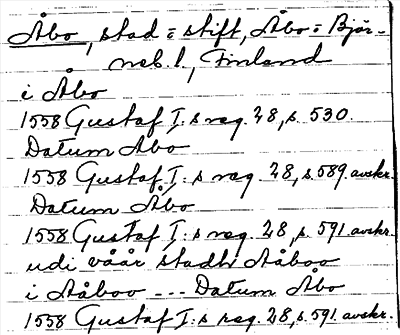 Åbo, stad = stift, Åbo = Björ-
neb. l., Finland
i Åbo
1558 Gustaf I:s reg. 28, s. 530.
Datum Åbo
1558 Gustaf I:s reg. 28, s. 589. avskr.
Datum Åbo
1558 Gustaf I:s reg. 28, s. 591. avskr.
udi våår stadh Aåboo
i Aåboo --- Datum Åbo
1558 Gustaf I:s reg. 28, s. 591. avskr.